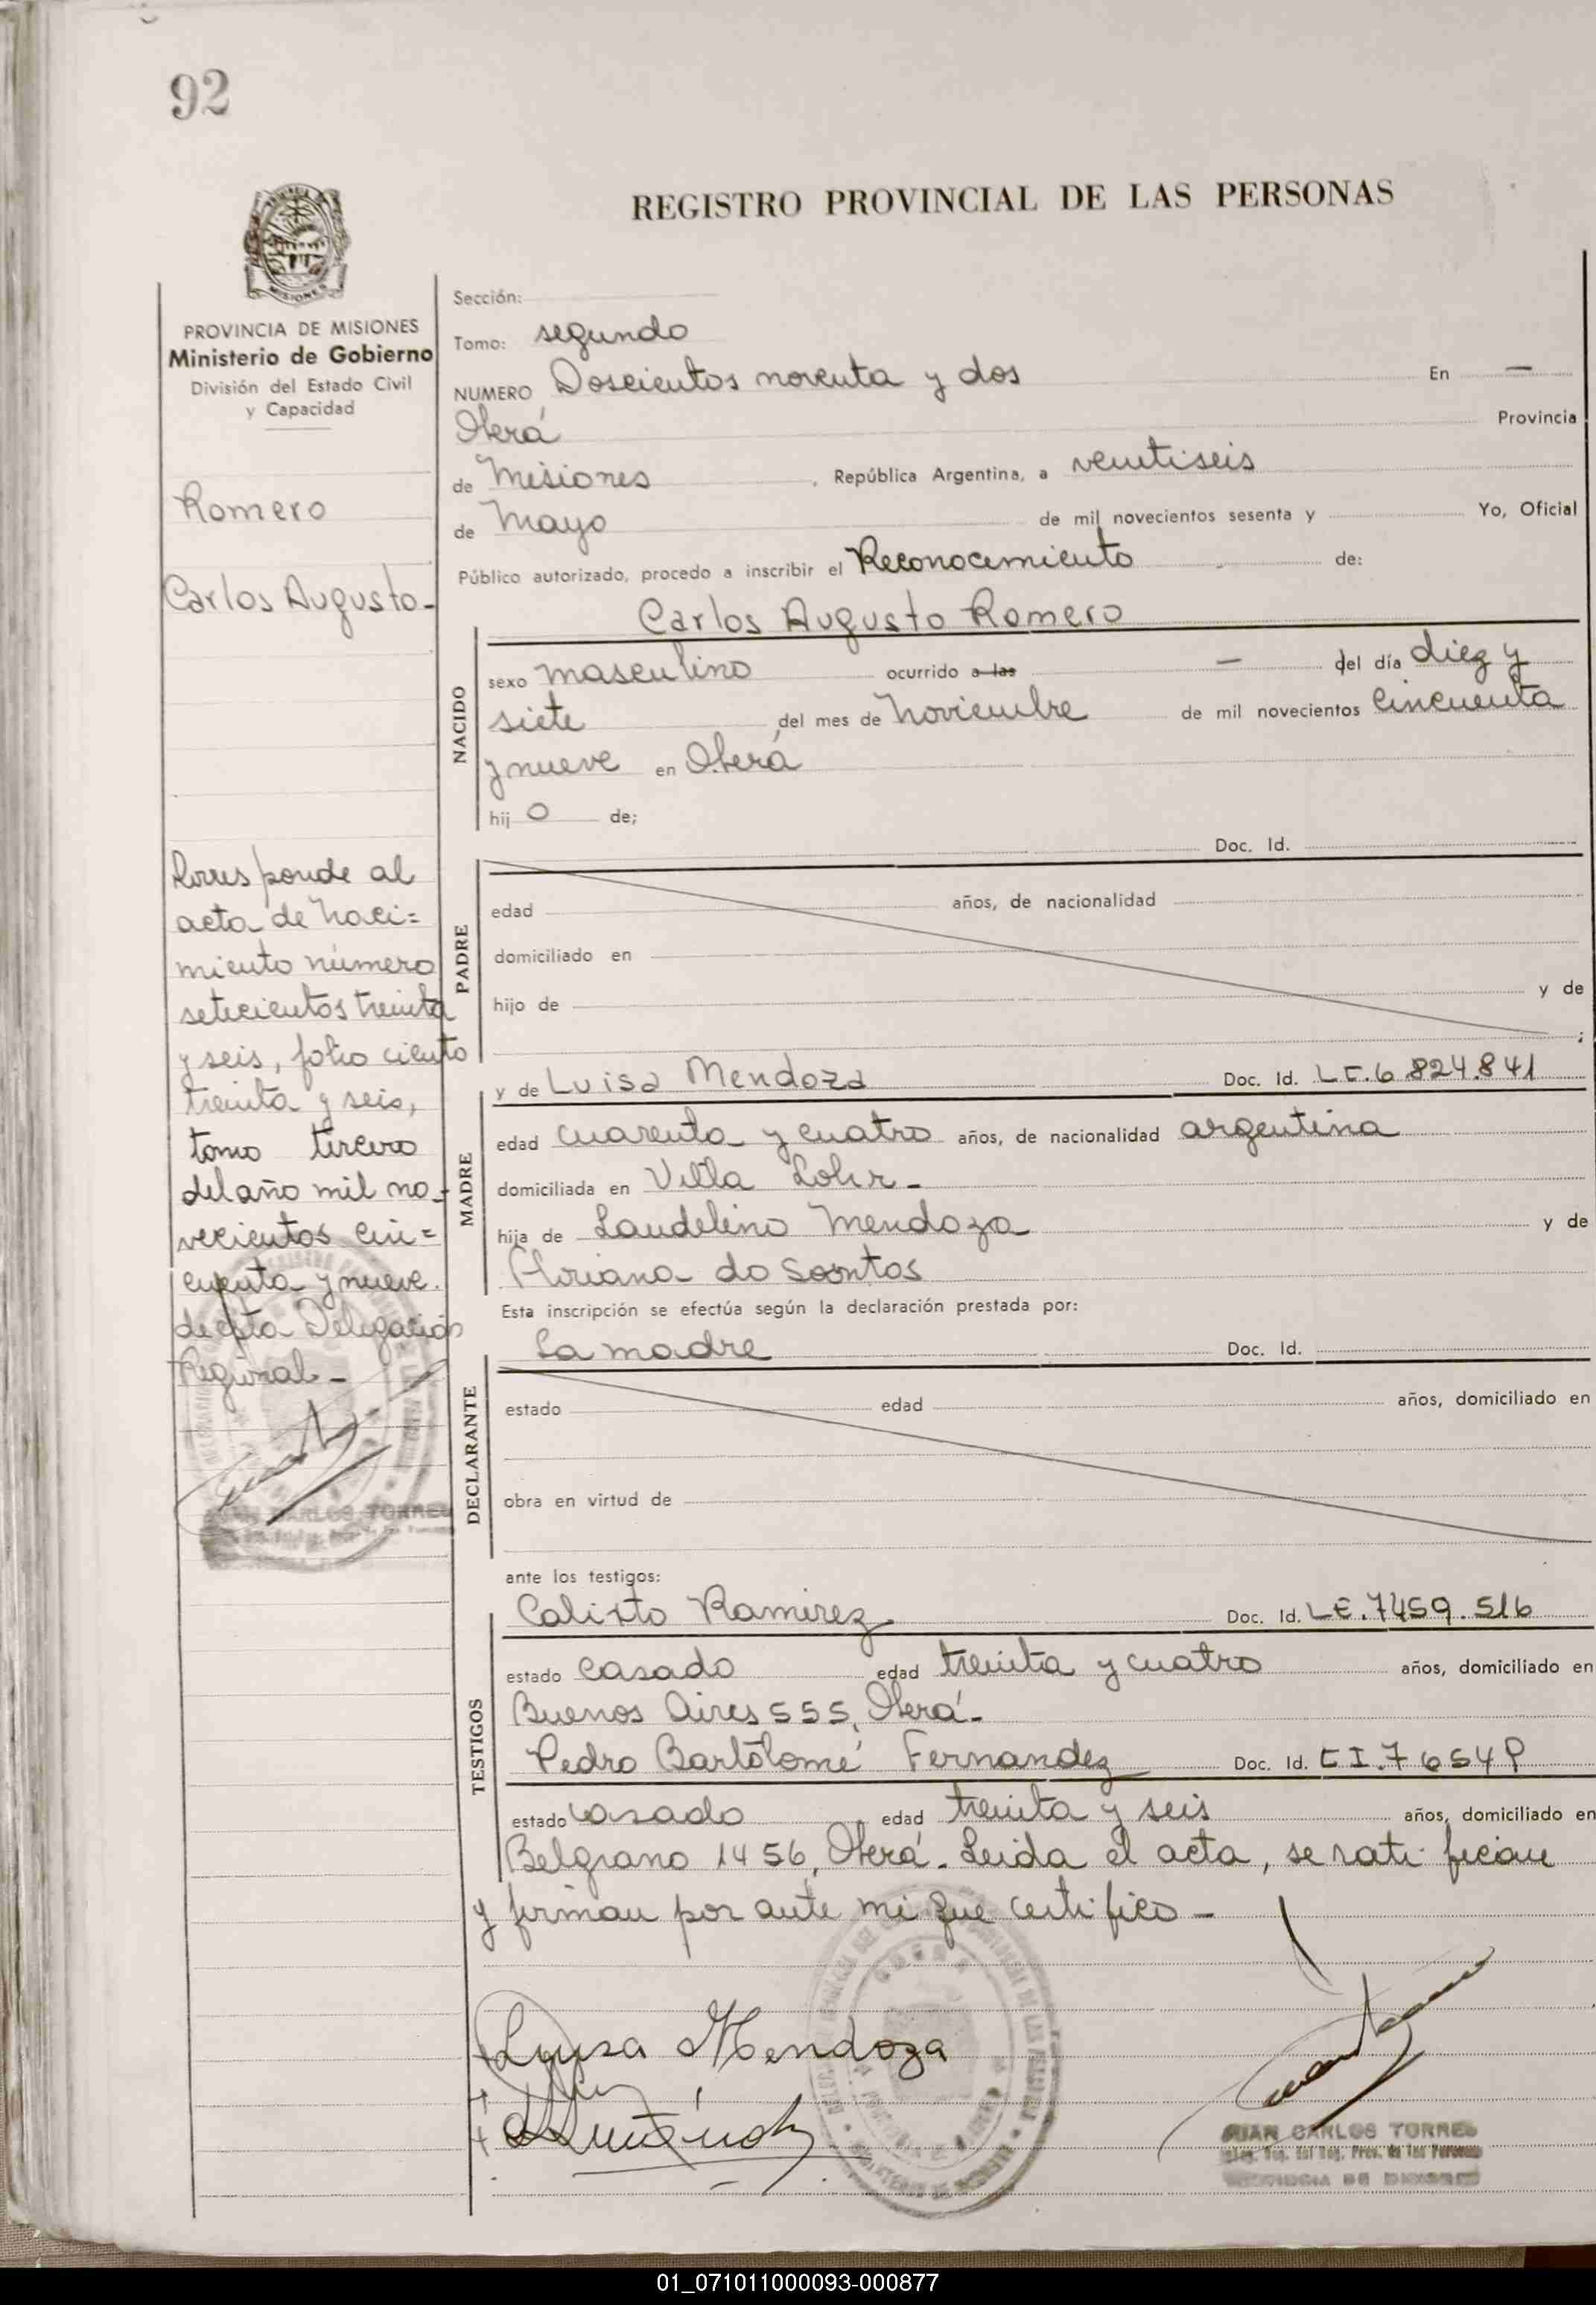 92
REGISTRO PROVINCIAL DE LAS PERSONAS
MISIONES
PROVINCIA DE MISIONES
Ministerio de Gobierno
División del Estado Civil
y Capacidad
Romero
Carlos Augusto-
Corresponde al
acta de Naci=
miento número
setecientos treinta
y seis, folio ciento
treinta y seis,
tomo tercero
del año mil no-
vecientos cin=
cuenta y nueve.
de esta Delegación
Regional-
JUAN CARLOS TORRES
Sección:
Tomo: segundo
NUMERO Doscientos noventa y dos En —
Oberá Provincia
de Misiones, República Argentina, a veintiseis
de Mayo de mil novecientos sesenta y Yo, Oficial
Público autorizado, procedo a inscribir el Reconocimiento de:
Carlos Augusto Romero
NACIDO
sexo masculino ocurrido a las — del día diez y
siete del mes de Noviembre de mil novecientos cincuenta
y nueve en Oberá
hij o de;
Doc. Id.
PADRE
edad años, de nacionalidad
domiciliado en
hijo de y de
;
MADRE
y de Luisa Mendoza Doc. Id. 6.824.841
edad cuarenta y cuatro años, de nacionalidad argentina
domiciliada en Villa Lohr-
hija de Laudelino Mendoza y de
do Santos
Esta inscripción se efectúa según la declaración prestada por:
La madre Doc. Id.
DECLARANTE
estado edad años, domiciliado en
obra en virtud de
ante los testigos:
TESTIGOS
Calixto Ramirez Doc. Id. LE.7459.516
estado casado edad treinta y cuatro años, domiciliado en
Buenos Aires 555, Oberá-
Pedro Bartolomé Fernandez Doc. Id. CI.7654P
estado casado edad treinta y seis años, domiciliado en
Belgrano 1456, Oberá. Leida el acta, se ratifican
y firman por ante mi que certifico-
Luisa Mendoza
JUAN CARLOS TORRES
01_071011000093-000877